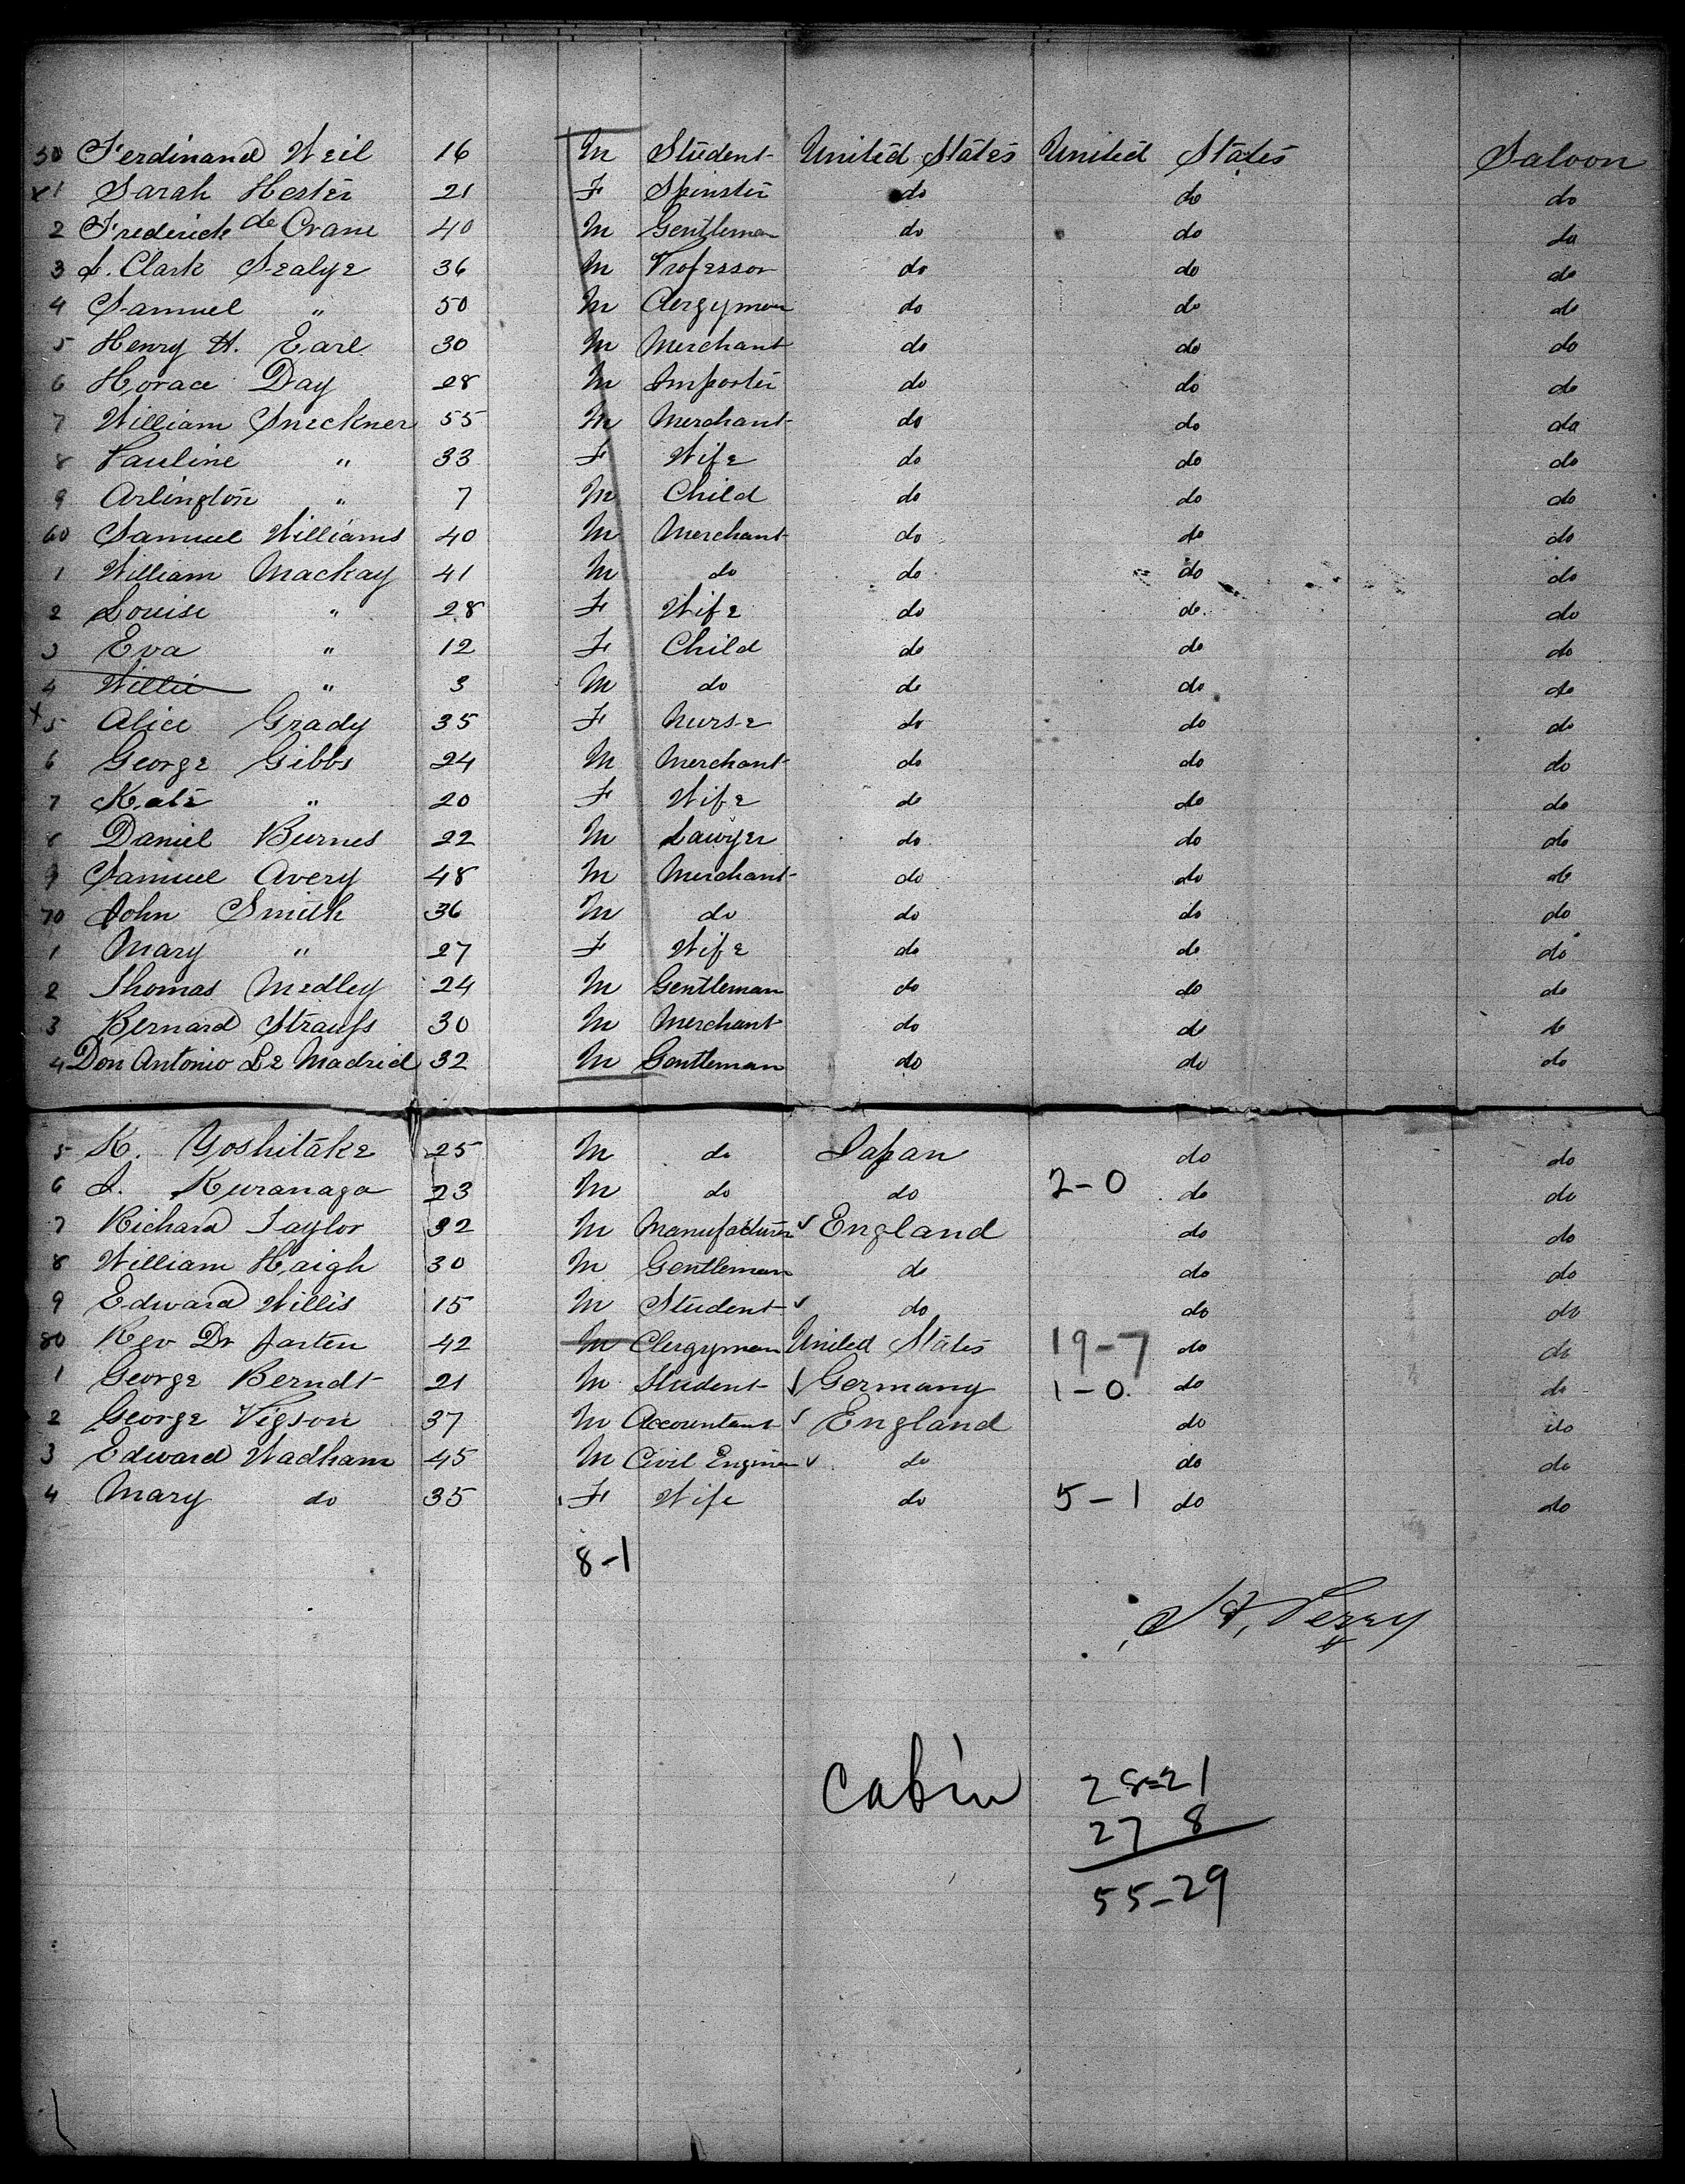 50 Ferdinand Weil 16 M Student United States United States Saloon
x1 Sarah Hester 21 F Spinster do do do
2 Frederick de Crane 40 M Gentleman do do do
3 L. Clark Sealye 36 M Professor do do do
4 Samuel " 50 M Clergyman do do do
5 Henry H. Earl 30 M Merchant do do do
6 Horace Day 28 M Importer do do do
7 William Sneckner 55 M Merchant do do do
8 Pauline " 33 F Wife do do do
9 Arlington " 7 M Child do do do
60 Samuel Williams 40 M Merchant do do do
1 William Mackay 41 M do do do do
2 Louise " 28 F Wife do do do
3 Eva " 12 F Child do do do
4 Willie " 3 M do do do do
x5 Alice Grady 35 F Nurse do do do
6 George Gibbs 24 M Merchant do do do
7 Kate " 20 F Wife do do do
8 Daniel Burnes 22 M Lawyer do do do
9 Samuel Avery 48 M Merchant do do do
70 John Smith 36 M do do do do
1 Mary " 27 F Wife do do do
2 Thomas Medley 24 M Gentleman do do do
3 Bernard Strauss 30 M Merchant do do do
4 Don Antonio Le Madrid 32 M Gentleman do do do
5 K. Yoshitake 25 M do Japan do do
6 I. Kuranaga 23 M do do 2-0 do do
7 Richard Taylor 32 M Manufacturer ✓ England do do
8 William Haigh 30 M Gentleman do do do
9 Edward Willis 15 M Student ✓ do do do
80 Rev Dr 42 M Clergyman United States 19-7 do do
1 George Berndt 21 M Student ✓ Germany 1-0 do do
2 George Vigson 37 M Accountant ✓ England do do
3 Edward Wadham 45 M Civil Engineer ✓ do do do
4 Mary do 35 F Wife do 5-1 do do
8-1
Perry
Cabin 28-21
27 8
55-29